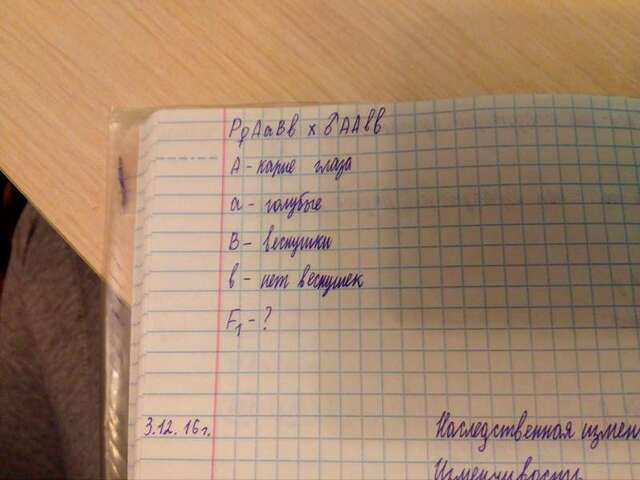 P ♀ AaBв x ♂ AAвв
A - карие глаза
a - голубые
B - веснушки
в - нет веснушек
F₁ - ?
3.12.16г.
Наследственная измен
Изменчивость